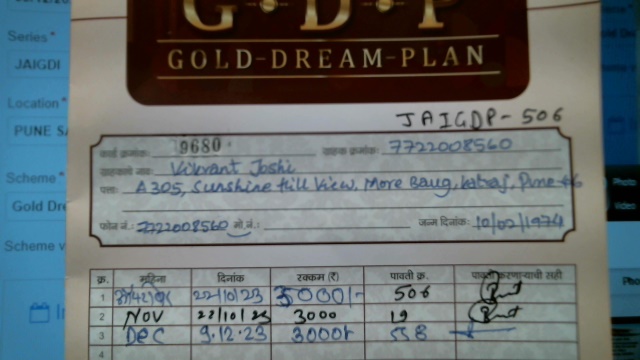 G·D·P
GOLD-DREAM-PLAN
Series*
JAIGDI
Location*
PUNE SA
Scheme*
Gold Dre
Scheme v
JAIGDP-506
कार्ड क्रमांक: 9680 ग्राहक क्रमांक: 7722008560
ग्राहकाचे नाव: Vikrant Joshi
पत्ता: A305, Sunshine Hill View, More Baug, Katraj, Pune-46
फोन नं.: 7722008560 मो.नं.: जन्म दिनांक: 10/02/1974
क्र. महिना दिनांक रक्कम (₹) पावती क्र. पावती करणाऱ्याची सही
1 22/10/23 3000/- 506
2 NOV 22/10/23 3000 19
3 Dec 9.12.23 3000/- 558
4
Photo
Video
Pho